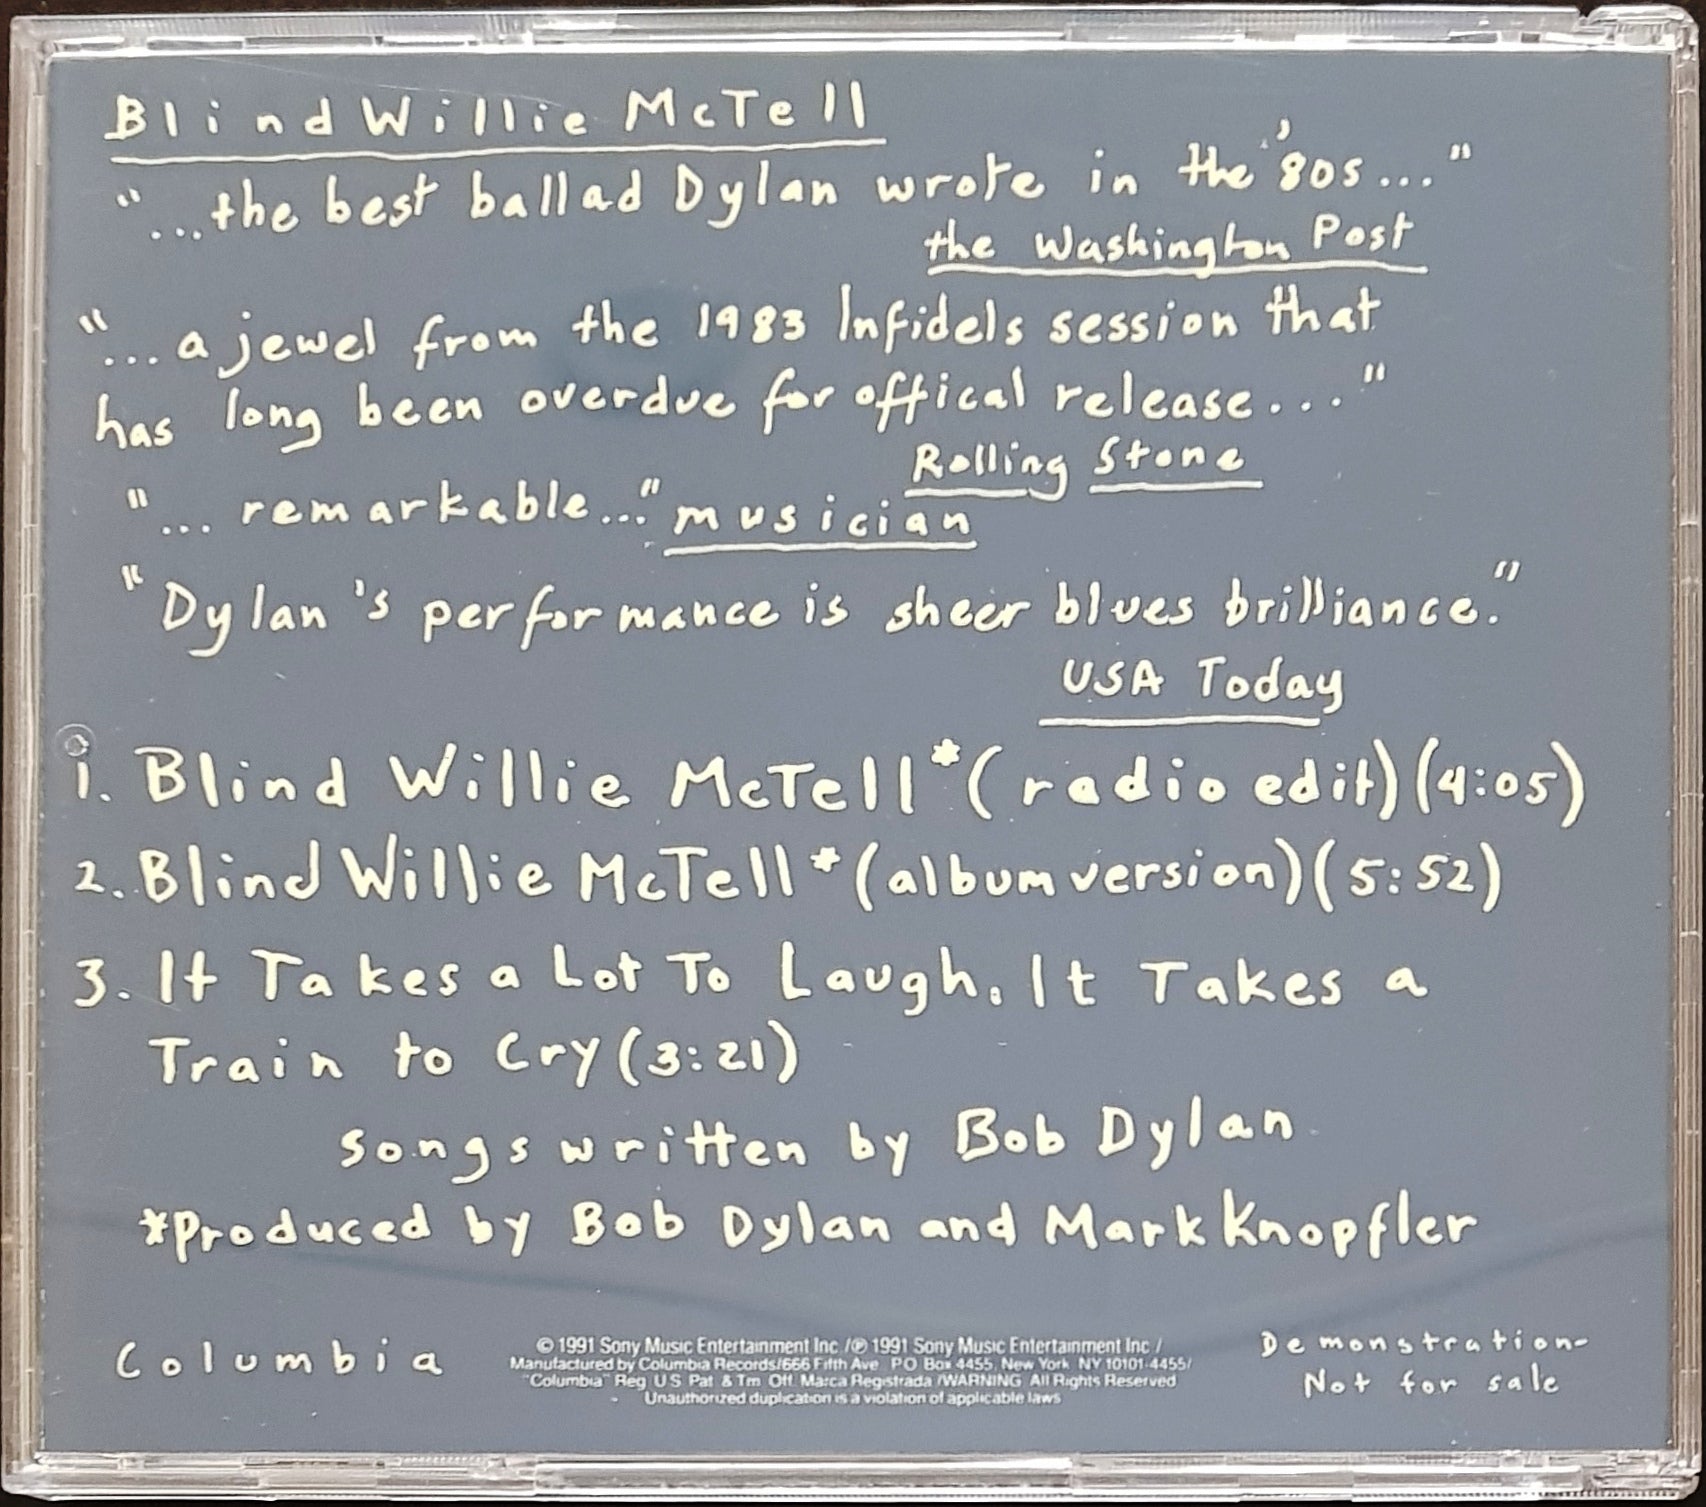 Blind Willie McTell
"...the best ballad Dylan wrote in the '80s..."
the Washington Post
"...a jewel from the 1983 Infidels session that
has long been overdue for offical release..."
Rolling Stone
"... remarkable..." musician
"Dylan's performance is sheer blues brilliance."
USA Today
1. Blind Willie McTell* (radio edit) (4:05)
2. Blind Willie McTell* (album version) (5:52)
3. It Takes a Lot To Laugh, It Takes a
Train to Cry (3:21)
songs written by Bob Dylan
*Produced by Bob Dylan and Mark Knopfler
Columbia
© 1991 Sony Music Entertainment Inc./℗ 1991 Sony Music Entertainment Inc /
Manufactured by Columbia Records/666 Fifth Ave. P.O. Box 4455, New York, NY 10101-4455/
"Columbia" Reg. U.S. Pat. & Tm. Off. Marca Registrada./WARNING: All Rights Reserved
Unauthorized duplication is a violation of applicable laws
Demonstration-
Not for sale